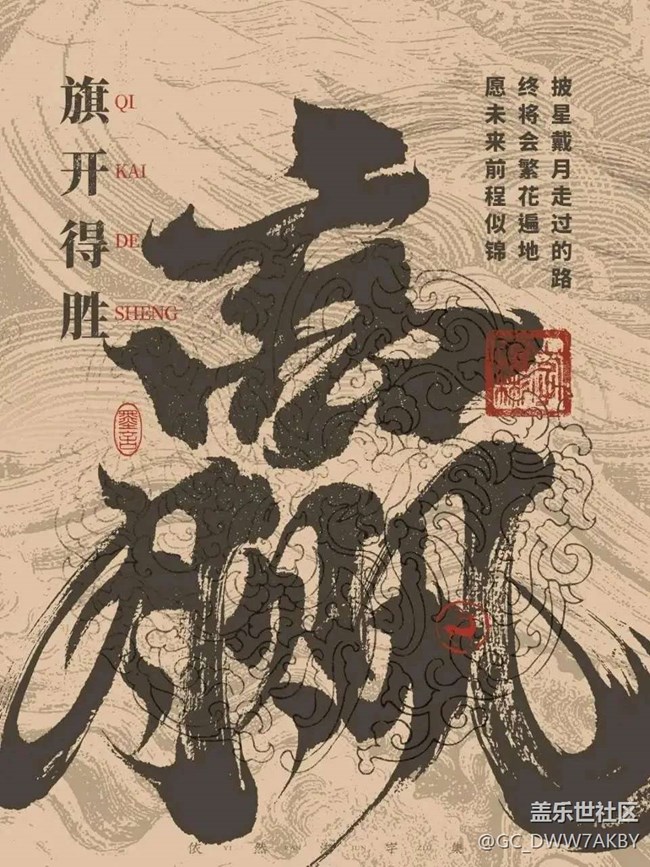 旗开得胜
QI
KAI
DE
SHENG
披星戴月走过的路
终将会繁花遍地
愿未来前程似锦
赢
盖乐世社区
@GC_DWW7AKBY